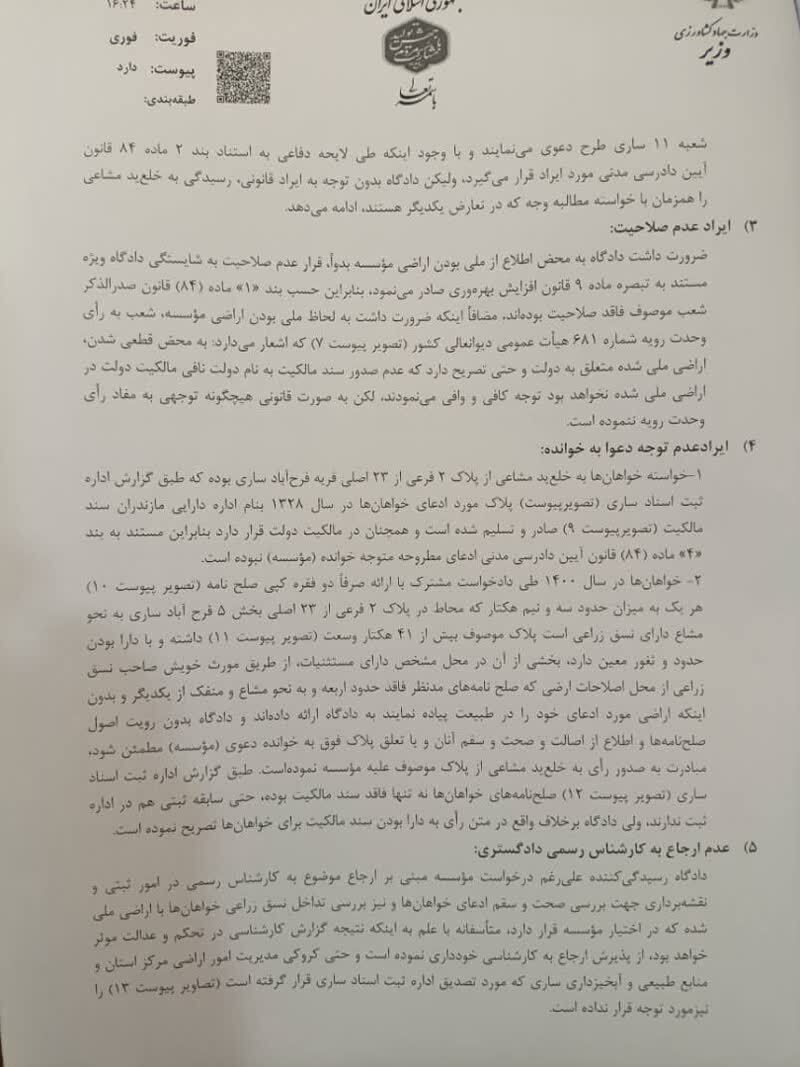 جمهوری اسلامی ایران
ساعت: ۱۶:۲۴
وزارت جهاد کشاورزی
وزیر
فوریت: فوری
پیوست: دارد
طبقه‌بندی:
باسمه تعالی
شعبه ۱۱ ساری طرح دعوی می‌نمایند و با وجود اینکه طی لایحه دفاعی به استناد بند ۲ ماده ۸۴ قانون
آیین دادرسی مدنی مورد ایراد قرار می‌گیرد، ولیکن دادگاه بدون توجه به ایراد قانونی، رسیدگی به خلع‌ید مشاعی
را همزمان با خواسته مطالبه وجه که در تعارض یکدیگر هستند، ادامه می‌دهد.
۳) ایراد عدم صلاحیت:
ضرورت داشت دادگاه به محض اطلاع از ملی بودن اراضی مؤسسه بدواً، قرار عدم صلاحیت به شایستگی دادگاه ویژه
مستند به تبصره ماده ۹ قانون افزایش بهره‌وری صادر می‌نمود، بنابراین حسب بند «۱» ماده (۸۴) قانون صدرالذکر
شعب موصوف فاقد صلاحیت بوده‌اند، مضافاً اینکه ضرورت داشت به لحاظ ملی بودن اراضی مؤسسه، شعب به رأی
وحدت رویه شماره ۶۸۱ هیأت عمومی دیوانعالی کشور (تصویر پیوست ۷) که اشعار می‌دارد: به محض قطعی شدن،
اراضی ملی شده متعلق به دولت و حتی تصریح دارد که عدم صدور سند مالکیت به نام دولت نافی مالکیت دولت در
اراضی ملی شده نخواهد بود توجه کافی و وافی می‌نمودند، لکن به صورت قانونی هیچگونه توجهی به مفاد رأی
وحدت رویه ننموده است.
۴) ایرادعدم توجه دعوا به خوانده:
۱-خواسته خواهان‌ها به خلع‌ید مشاعی از پلاک ۲ فرعی از ۲۳ اصلی قریه فرح‌آباد ساری بوده که طبق گزارش اداره
ثبت اسناد ساری (تصویرپیوست) پلاک مورد ادعای خواهان‌ها در سال ۱۳۲۸ بنام اداره دارایی مازندران سند
مالکیت (تصویرپیوست ۹) صادر و تسلیم شده است و همچنان در مالکیت دولت قرار دارد بنابراین مستند به بند
«۴» ماده (۸۴) قانون آیین دادرسی مدنی ادعای مطروحه متوجه خوانده (مؤسسه) نبوده است.
۲- خواهان‌ها در سال ۱۴۰۰ طی دادخواست مشترک با ارائه صرفاً دو فقره کپی صلح نامه (تصویر پیوست ۱۰)
هر یک به میزان حدود سه و نیم هکتار که محاط در پلاک ۲ فرعی از ۲۳ اصلی بخش ۵ فرح آباد ساری به نحو
مشاع دارای نسق زراعی است پلاک موصوف بیش از ۴۱ هکتار وسعت (تصویر پیوست ۱۱) داشته و با دارا بودن
حدود و ثغور معین دارد، بخشی از آن در محل مشخص دارای مستثنیات، از طریق مورث خویش صاحب نسق
زراعی از محل اصلاحات ارضی که صلح نامه‌های مدنظر فاقد حدود اربعه و به نحو مشاع و منفک از یکدیگر و بدون
اینکه اراضی مورد ادعای خود را در طبیعت پیاده نمایند به دادگاه ارائه داده‌اند و دادگاه بدون رویت اصول
صلح‌نامه‌ها و اطلاع از اصالت و صحت و سقم آنان و یا تعلق پلاک فوق به خوانده دعوی (مؤسسه) مطمئن شود،
مبادرت به صدور رأی به خلع‌ید مشاعی از پلاک موصوف علیه مؤسسه نموده‌است. طبق گزارش اداره ثبت اسناد
ساری (تصویر پیوست ۱۲) صلح‌نامه‌های خواهان‌ها نه تنها فاقد سند مالکیت بوده، حتی سابقه ثبتی هم در اداره
ثبت ندارند، ولی دادگاه برخلاف واقع در متن رأی به دارا بودن سند مالکیت برای خواهان‌ها تصریح نموده است.
۵) عدم ارجاع به کارشناس رسمی دادگستری:
دادگاه رسیدگی‌کننده علی‌رغم درخواست مؤسسه مبنی بر ارجاع موضوع به کارشناس رسمی در امور ثبتی و
نقشه‌برداری جهت بررسی صحت و سقم ادعای خواهان‌ها و نیز بررسی تداخل نسق زراعی خواهان‌ها با اراضی ملی
شده که در اختیار مؤسسه قرار دارد، متأسفانه با علم به اینکه نتیجه گزارش کارشناسی در تحکم و عدالت موثر
خواهد بود، از پذیرش ارجاع به کارشناسی خودداری نموده است و حتی کروکی مدیریت امور اراضی مرکز استان و
منابع طبیعی و آبخیزداری ساری که مورد تصدیق اداره ثبت اسناد ساری قرار گرفته است (تصاویر پیوست ۱۳) را
نیزمورد توجه قرار نداده است.